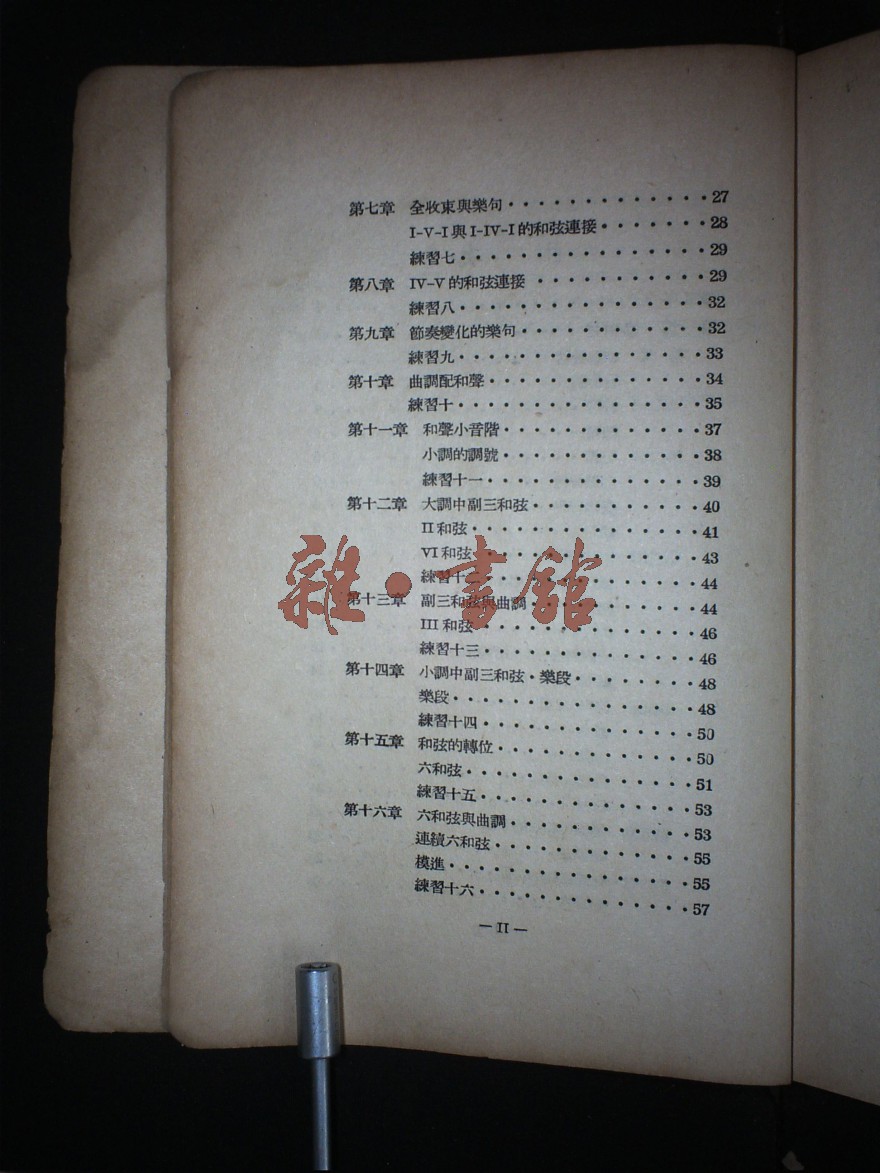 第七章 全收束與樂句・・・・・・・・・・・・・27
I-V-I 與 I-IV-I 的和弦連接・・・・・・・28
練習七・・・・・・・・・・・・・・・・29
第八章 IV-V 的和弦連接・・・・・・・・・・・・29
練習八・・・・・・・・・・・・・・・・32
第九章 節奏變化的樂句・・・・・・・・・・・・32
練習九・・・・・・・・・・・・・・・・33
第十章 曲調配和聲・・・・・・・・・・・・・・34
練習十・・・・・・・・・・・・・・・・35
第十一章 和聲小音階・・・・・・・・・・・・・37
小調的調號・・・・・・・・・・・・・38
練習十一・・・・・・・・・・・・・・39
第十二章 大調中副三和弦・・・・・・・・・・・40
II 和弦・・・・・・・・・・・・・・・41
VI 和弦・・・・・・・・・・・・・・・43
練習十二・・・・・・・・・・・・・・44
第十三章 副三和弦與曲調・・・・・・・・・・・44
III 和弦・・・・・・・・・・・・・・・46
練習十三・・・・・・・・・・・・・・46
第十四章 小調中副三和弦・樂段・・・・・・・・48
樂段・・・・・・・・・・・・・・・・48
練習十四・・・・・・・・・・・・・・50
第十五章 和弦的轉位・・・・・・・・・・・・・50
六和弦・・・・・・・・・・・・・・・51
練習十五・・・・・・・・・・・・・・53
第十六章 六和弦與曲調・・・・・・・・・・・・53
連續六和弦・・・・・・・・・・・・・55
模進・・・・・・・・・・・・・・・・55
練習十六・・・・・・・・・・・・・・57
— II —
雜・書館